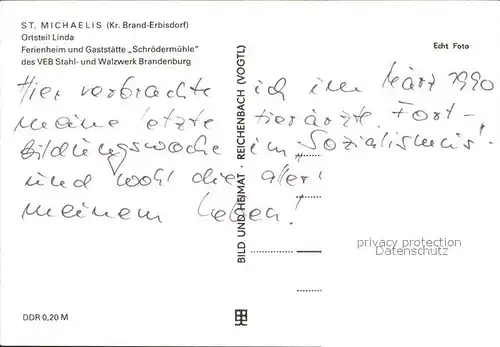 ST. MICHAELIS (Kr. Brand-Erbisdorf)
Ortsteil Linda
Ferienheim und Gaststätte „Schrödermühle"
des VEB Stahl- und Walzwerk Brandenburg
Echt Foto
Hier verbrachte ich im März 1990
meine letzte tierärztl. Fort-
bildungswoche im Sozialismus!
und wohl die aller
meinem Leben!
BILD UND HEIMAT · REICHENBACH (VOGTL)
privacy protection
Datenschutz
DDR 0,20 M